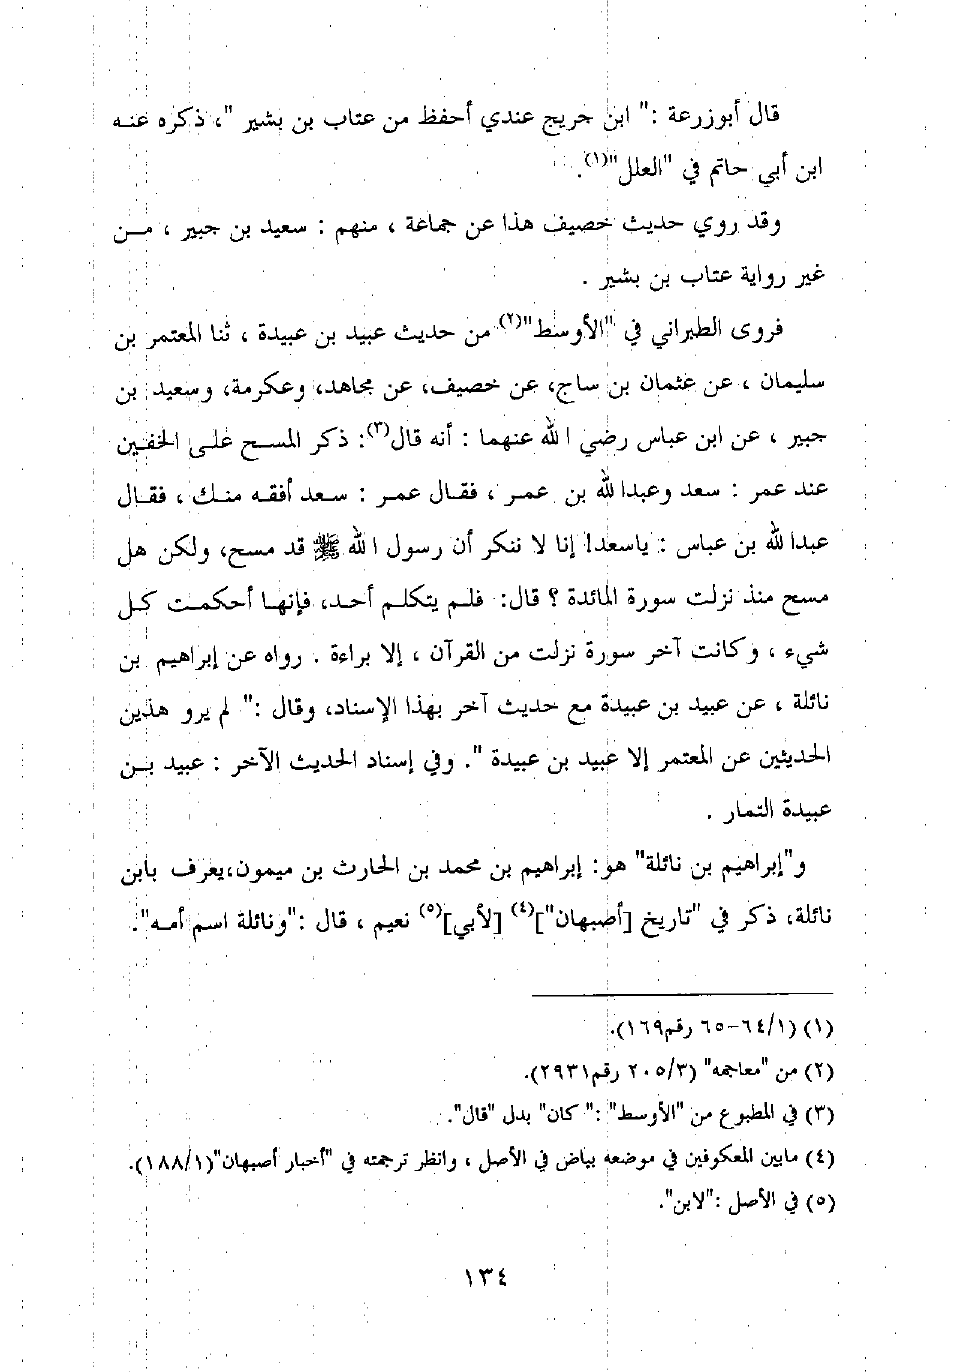 قال أبوزرعة :" ابن جريج عندي أحفظ من عتاب بن بشير "، ذكره عنه
ابن أبي حاتم في "العلل"(١).
وقد روي حديث خصيف هذا عن جماعة ، منهم : سعيد بن جبير ، من
غير رواية عتاب بن بشير .
فروى الطبراني في "الأوسط"(٢) من حديث عبيد بن عبيدة ، ثنا المعتمر بن
سليمان ، عن عثمان بن ساج، عن خصيف، عن مجاهد، وعكرمة، وسعيد بن
جبير ، عن ابن عباس رضي الله عنهما : أنه قال(٣): ذكر المسح على الخفين
عند عمر : سعد وعبدالله بن عمر ، فقال عمر : سعد أفقه منك ، فقال
عبدالله بن عباس : ياسعد! إنا لا ننكر أن رسول الله ﷺ قد مسح، ولكن هل
مسح منذ نزلت سورة المائدة ؟ قال: فلم يتكلم أحد، فإنها أحكمت كل
شيء ، وكانت آخر سورة نزلت من القرآن ، إلا براءة . رواه عن إبراهيم بن
نائلة ، عن عبيد بن عبيدة مع حديث آخر بهذا الإسناد، وقال :" لم يرو هذين
الحديثين عن المعتمر إلا عبيد بن عبيدة ". وفي إسناد الحديث الآخر : عبيد بن
عبيدة التمار .
و"إبراهيم بن نائلة" هو: إبراهيم بن محمد بن الحارث بن ميمون،يعرف بابن
نائلة، ذكر في "تاريخ [أصبهان"](٤) [لأبي](٥) نعيم ، قال :"ونائلة اسم أمه".
(١) (٦٤/١-٦٥ رقم١٦٩).
(٢) من "معاجمه" (٢٠٥/٣ رقم٢٩٣١).
(٣) في المطبوع من "الأوسط" :" كان" بدل "قال".
(٤) مابين المعكوفين في موضعه بياض في الأصل ، وانظر ترجمته في "أخبار أصبهان"(١٨٨/١).
(٥) في الأصل :"لابن".
١٣٤